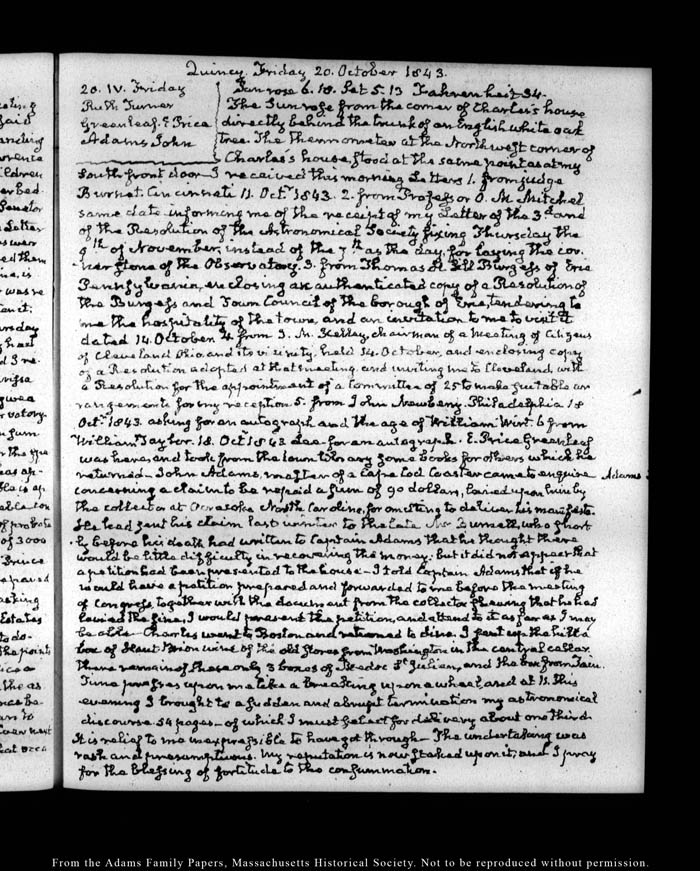 Quincy. Friday 20. October 1843.
20. IV. Friday
Ruth Turner
Greenleaf. E Price
Adams John
Sun rose 6.18. Set 5.13 Fahrenheit 34.
The Sun rose from the corner of Charles's house
directly behind the trunk of an English white oak
tree. The thermometer at the Northwest corner of
Charles's house, stood at the same point as at my
South front door. I received this morning Letters 1. from judge
Burnet. Cincinnati 11. Octr. 1843. 2. from Professor O. M. Mitchel
same date informing me of the receipt of my Letter of the 3d and
of the Resolution of the Astronomical Society fixing Thursday the
9th of November, instead of the 7th as the day, for laying the cor-
-ner stone of the Observatory. 3. from Thomas Burgess of Erie
Pennsylvania, enclosing an authenticated copy of a Resolution of
the Burgess and Town Council of the borough of Erie, tendering to
me the hospitality of the town, and an invitation to me to visit it
dated 14. October 4 from J. M. Kelley, chairman of a Meeting of Citizens
of Cleveland Ohio, and its vicinity, held 14. October, and enclosing copy
of a Resolution adopted at that meeting, and inviting me to Cleveland, with
a Resolution for the appointment of a Committee of 25 to make suitable ar-
rangements for my reception 5. from John Newberg. Philadelphia 18
Octr. 1843. asking for an autograph and the age of William Wirt. 6 from
William Tayler. 18. Octr. 1843 for an autograph. E. Price Greenleaf
was here, and took from the town library some books for others which he
returned – John Adams, master of a Cape Cod Coaster came to enquire
Adams
concerning a claim to be repaid a sum of 90 dollars, levied upon him by
the collector at Ocracoke North Carolina, for omitting to deliver his manifests.
He had sent his claim last winter to the late Mr Burnell, who short
-ly before his death had written to Captain Adams that he thought there
would be little difficulty in recovering the money. but it did not appear that
a petition had been presented to the house – I told Captain Adams that if he
would have a petition prepared and forwarded to me before the meeting
of Congress, together with the document from the collector shewing that he has
levied the fine, I would present the petition, and attend to it as far as I may
be able. Charles went to Boston and returned to dine. I sent up the hill a
box of Haut Brion wine of the old stores from Washington in the central cellar
There remain of these only 3 boxes of Medoc St Julien, and the box from
Time presses upon me like a breaking upon a wheel, and at 11. this
evening I brought to a sudden and abrupt termination my astronomical
discourse 54 pages – of which I must select for delivery about one third
It is relief to me inexpressible to have got through – The undertaking was
rash and presumptuous. My reputation is now staked upon it, and I pray
for the blessing of fortitude to the consummation.
From the Adams Family Papers, Massachusetts Historical Society. Not to be reproduced without permission.